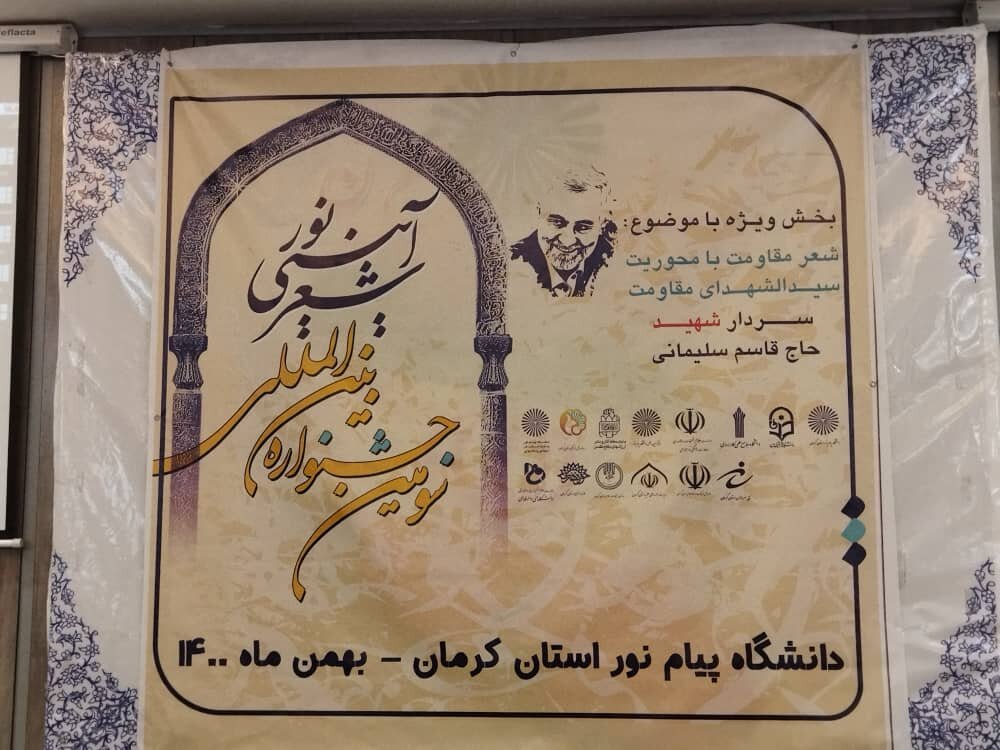 eflecta
بخش ویژه با موضوع:
شعر مقاومت با محوریت
سیدالشهدای مقاومت
سردار شهید
حاج قاسم سلیمانی
سومین جشنواره
بین المللی
شعر آیینی نور
دانشگاه پیام نور استان کرمان - بهمن ماه ۱۴۰۰